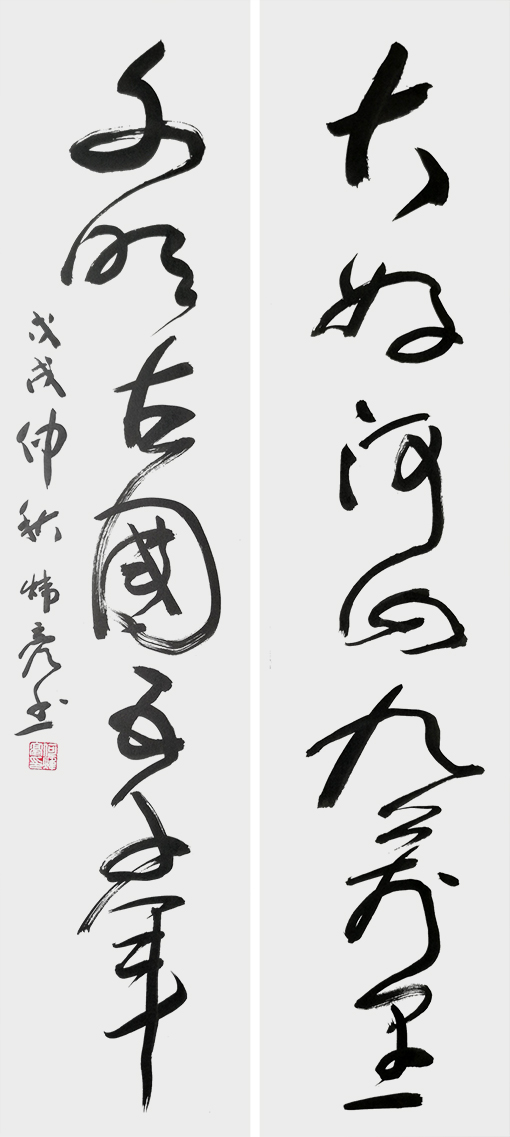 大好河山九萬里
文明古國五千年
戊戌仲秋 煒彥書